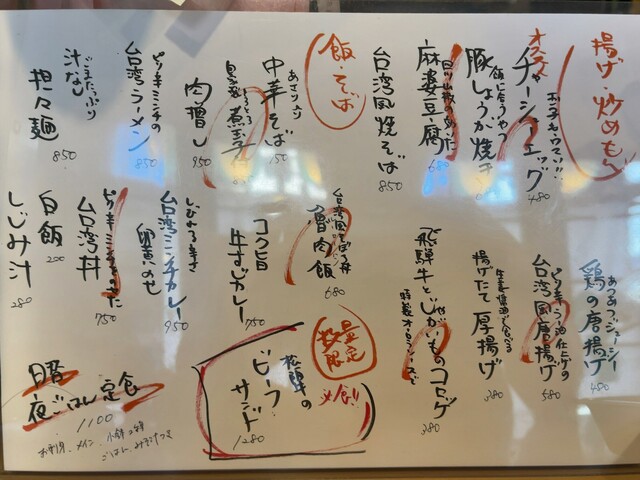 揚げ・炒めもの
オススメ
チャーシューエッグ
480
豚しょうが焼き
麻婆豆腐
680
台湾風焼そば
850
飯・そば
あっさり
中華そば
750
煮玉子
肉増し
950
ピリ辛ミンチの
台湾ラーメン
850
ごまたっぷり
汁なし
担々麺
850
あつあつジューシー
鶏の唐揚げ
480
ピリ辛ラー油仕上げの
台湾風唐揚げ
580
生姜醤油で食べる
揚げたて厚揚げ
380
飛騨牛とじゃがいものコロッケ
380
台湾風そぼろ丼
魯肉飯
680
コク旨
牛すじカレー
750
しびれる辛さ
台湾ミンチカレー
950
卵黄のせ
台湾丼
750
白飯
200
しじみ汁
280
数量限定
松阪牛の
ビーフサンド
1280
夜ごはん定食
1100
お刺身、メイン、小鉢2種
ごはん、みそ汁つき